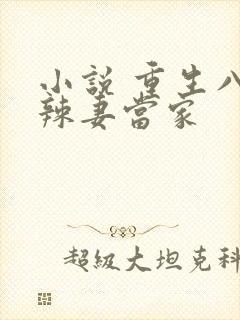 小說 重生八
辣妻當家
超級大坦克科